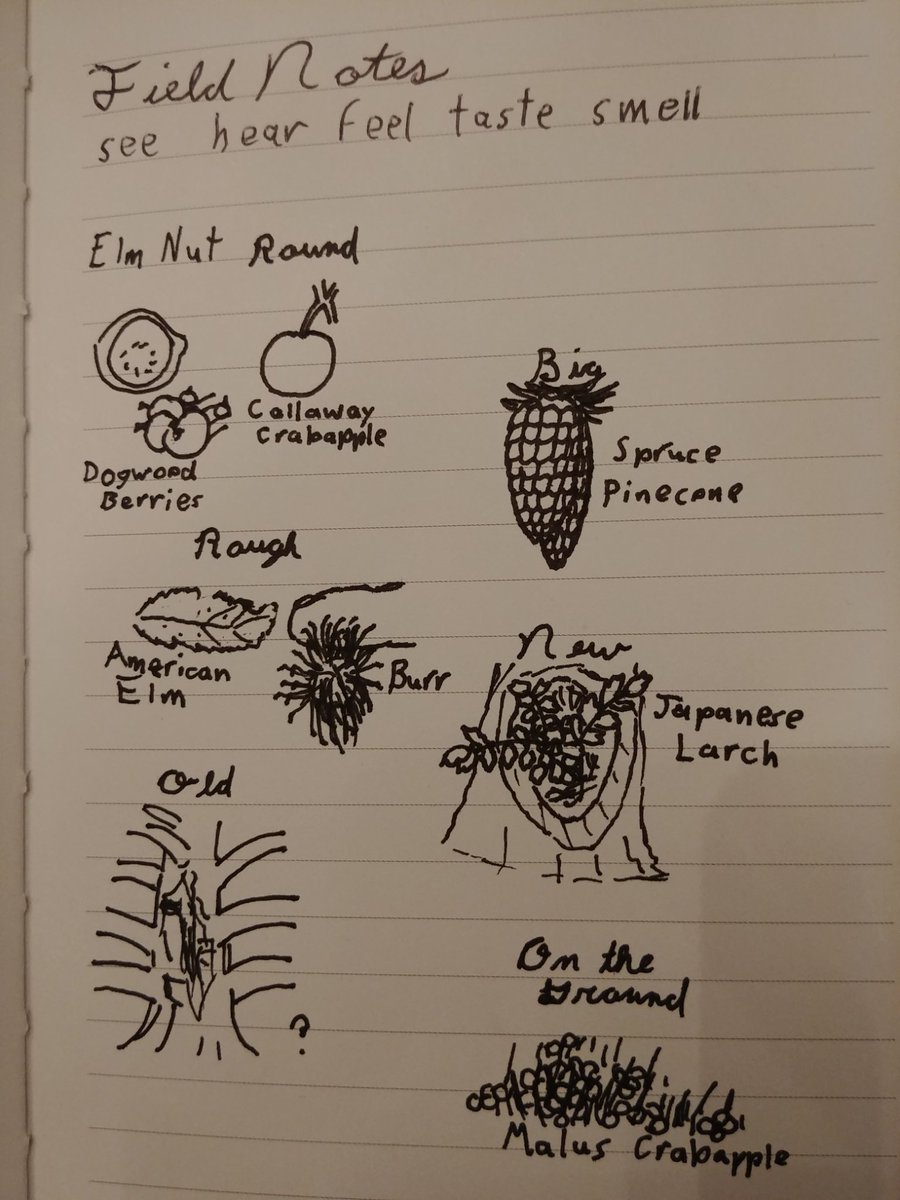 Field Notes
see hear feel taste smell
Elm Nut Round
Callaway
Crabapple
Dogwood
Berries
Big
Spruce
Pinecone
Rough
American
Elm
Burr
New
Japanese
Larch
Old
?
On the
Ground
Malus Crabapple